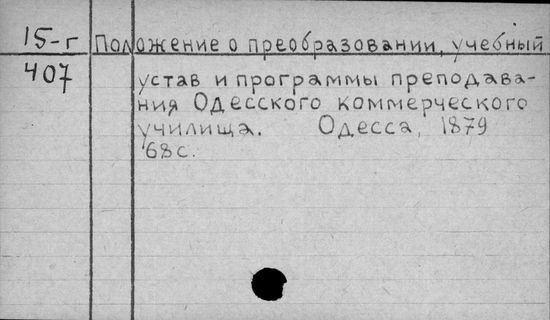 15-г Положение о преобразовании, учебный
407 устав и программы преподава-
ния Одесского коммерческого
училища. Одесса, 1879
68с.